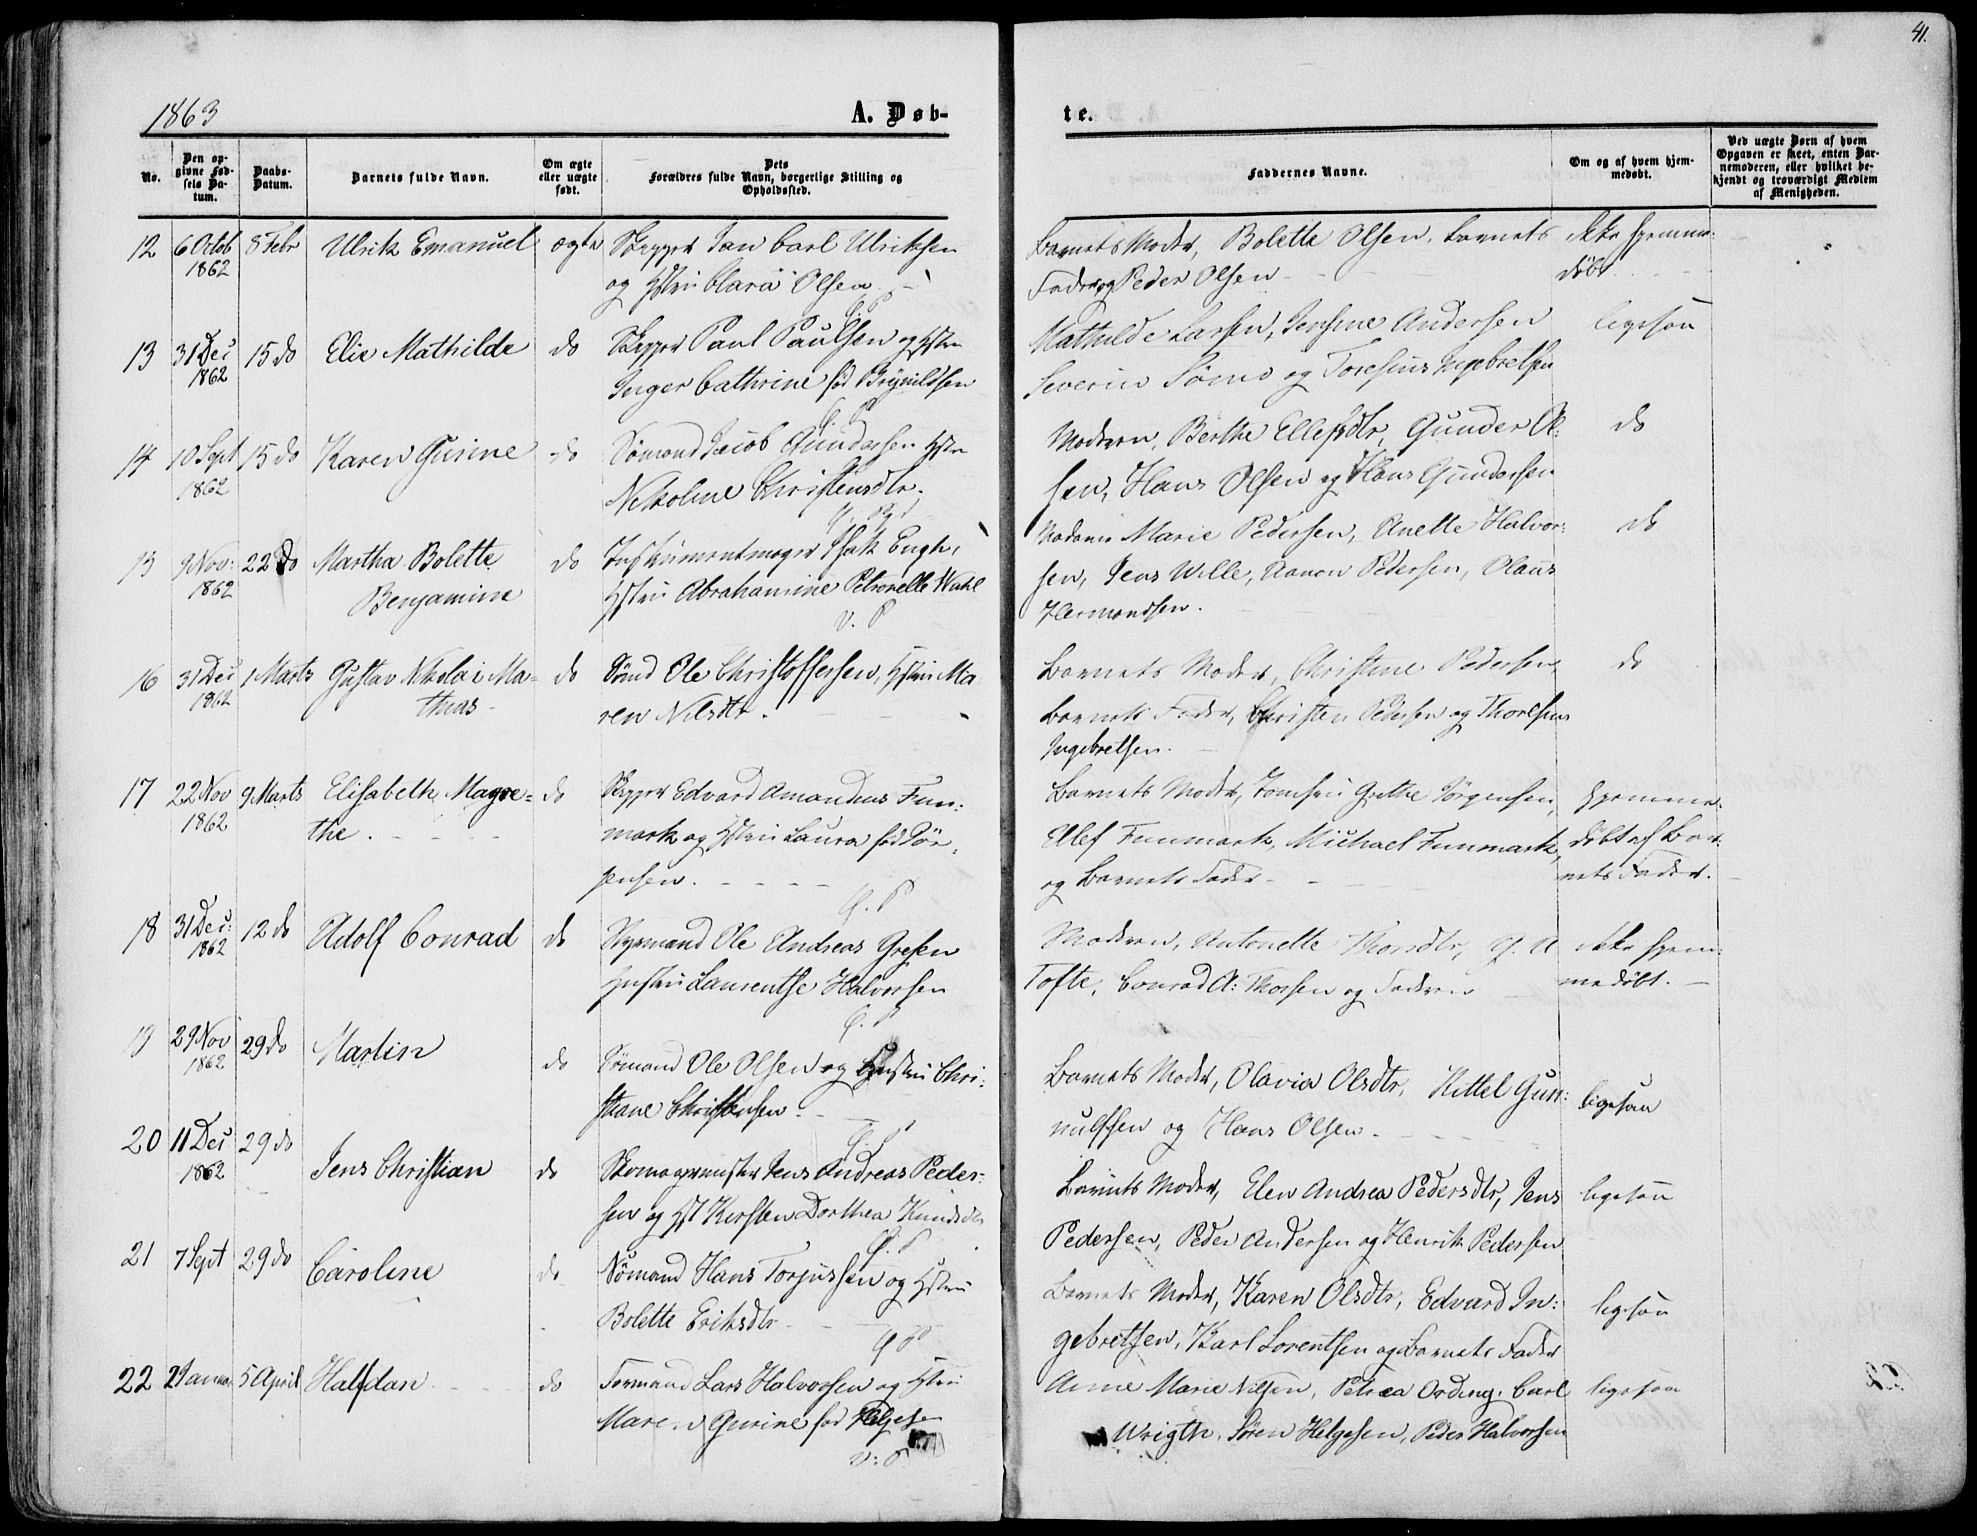 41.
1863
A. Døb-
te.
No.
Den op-
givne Fød-
sels Da-
tum.
Daabs-
Datum.
Barnets fulde Navn.
Om ægte
eller uægte
født.
Dets
Forældres fulde Navn, borgerlige Stilling og
Opholdssted.
Faddernes Navne.
Om og af hvem hjem-
medøbt.
Ved uægte Børn af hvem
Opgaven er skeet, enten Bar-
nemoderen, eller hvilket be-
kjendt og troværdigt Medlem
af Menigheden.
12 6 Octob 1862 8 Febr Ulrik Emanuel ægte
Skipper Jan Carl Ulriksen
og Hstru Clara Olsen
Barnets Moder, Bolette Olsen, Barnets
Fader og Peder Olsen
ikke hjemme-
døbt
13 31 Dec 1862 15 do Elie Mathilde do
Skipper Paul Paulsen og Hstru
Inger Cathrine fød Brynildsen
Mathilde Larsen, Jensine Andersen
Severin Sømo og Toresius Ingebretsen
ligesaa
14 10 Sept 1862 15 do Karen Gurine do
Sømand Jacob Gundersen Hstru
Nikoline Christensdtr.
Moderen, Berthe Ellefsdtr, Gunder
sen, Hans Olsen og Hans Gundersen
do
15 9 Nov: 1862 22 do Martha Bolette
Benjamine do
Instrumentmager Isak Engh,
Hstru Abrahamine Petronelle Wahl
V. P
Moderen Marie Pedersen, Anette Halvor-
sen, Jens Wille, Aanon Pedersen, Olaus
Hermandsen.
do
16 31 Dec 1862 1 Marts Gustav Nikolai Ma-
thias do
Sømd Ole Christoffersen, Hstru Ma-
ren Nilsdtr.
Barnets Moder, Christine Pedersen,
Barnets Fader, Christen Pedersen og Thoresius
Ingebretsen.
do
17 22 Nov 1862 9 Marts Elisabeth Magre-
the. do
Skipper Edvard Amandius Fun-
mark og Hstru Laura fød Jør-
gensen.
Barnets Moder, Tomsen Grethe Jørgensen,
Ulef Funmark, Michael Funmark,
og Barnets Fader
hjemme-
døbt af Bar-
nets Fader.
18 31 Dec: 1862 12 do Adolf Conrad do
Styrmand Ole Andreas Gresen
Hustru Laurentse Halvorsen
Moderen, Antonette Thorsdtr,
Tofte, Conrad A: Thorsen og Faderen
ikke hjem-
medøbt.
19 29 Nov 1862 29 do Martin do
Sømand Ole Olsen og Hustru Chri-
stiane Christensen.
Barnets Moder, Olavia Olsdtr, Kittel Gun-
nulfsen og Hans Olsen.
ligesaa
20 11 Dec 1862 29 do Jens Christian do
Skomagermester Jens Andreas Peder-
sen og Hst Kirsten Dorthea Knudsdtr
Barnets Moder, Elen Andrea Pedersdtr, Jens
Pedersen, Peder Andersen og Henrik Pedersen
ligesaa
21 7 Sept 29 do Caroline do
Sømand Hans Torjussen og Hstru
Bolette Eriksdtr
Barnets Moder, Karen Olsdtr, Edvard In-
gebretsen, Karl Lorentsen og Barnets Fader
ligesaa
22 2 Januar 5 April Halfdan do
Formand Lars Halvorsen og Hstru
Maren Gurine fød Helgesen
V: P.
Anne Marie Nilsen, Petrea Ording, Carl
Wrigth, Søren Helgesen, Peder Halvorsen
ligesaa